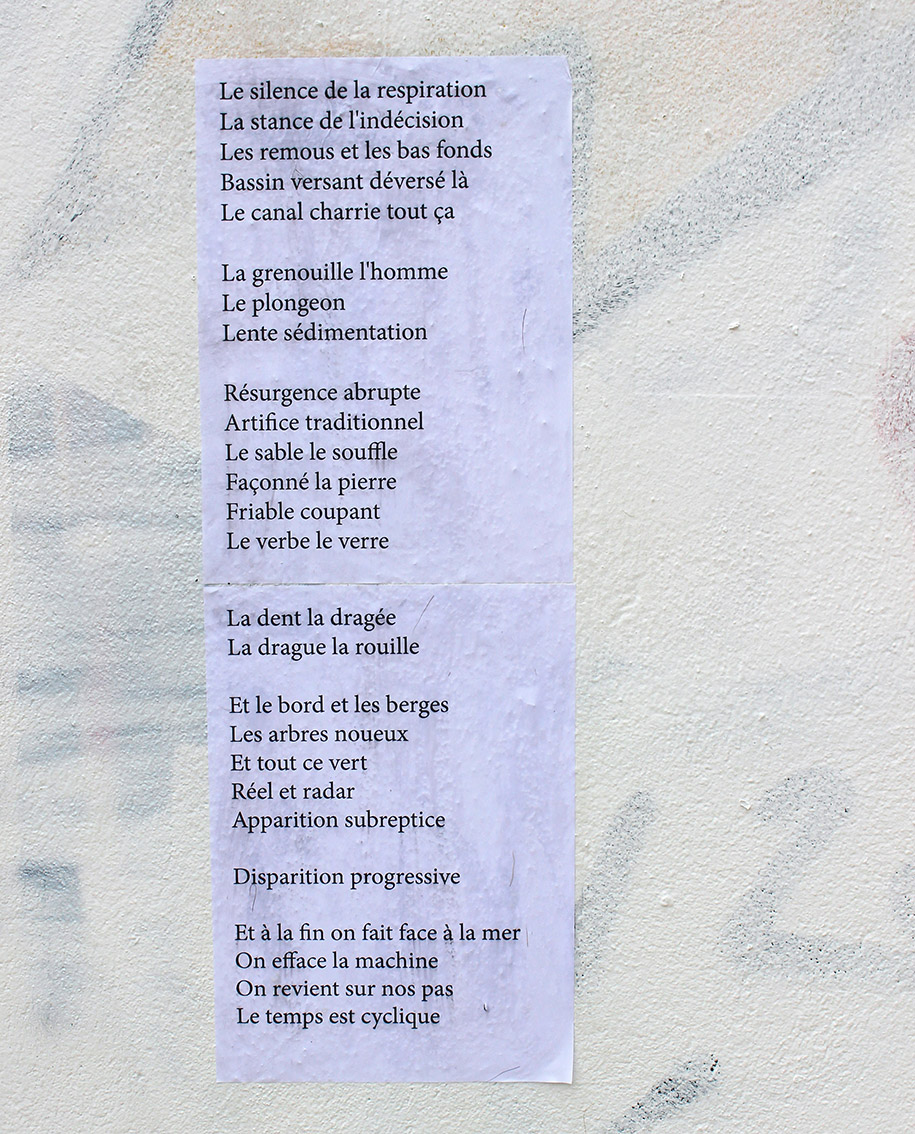 Le silence de la respiration
La stance de l'indécision
Les remous et les bas fonds
Bassin versant déversé là
Le canal charrie tout ça
La grenouille l'homme
Le plongeon
Lente sédimentation
Résurgence abrupte
Artifice traditionnel
Le sable le souffle
Façonné la pierre
Friable coupant
Le verbe le verre
La dent la dragée
La drague la rouille
Et le bord et les berges
Les arbres noueux
Et tout ce vert
Réel et radar
Apparition subreptice
Disparition progressive
Et à la fin on fait face à la mer
On efface la machine
On revient sur nos pas
Le temps est cyclique